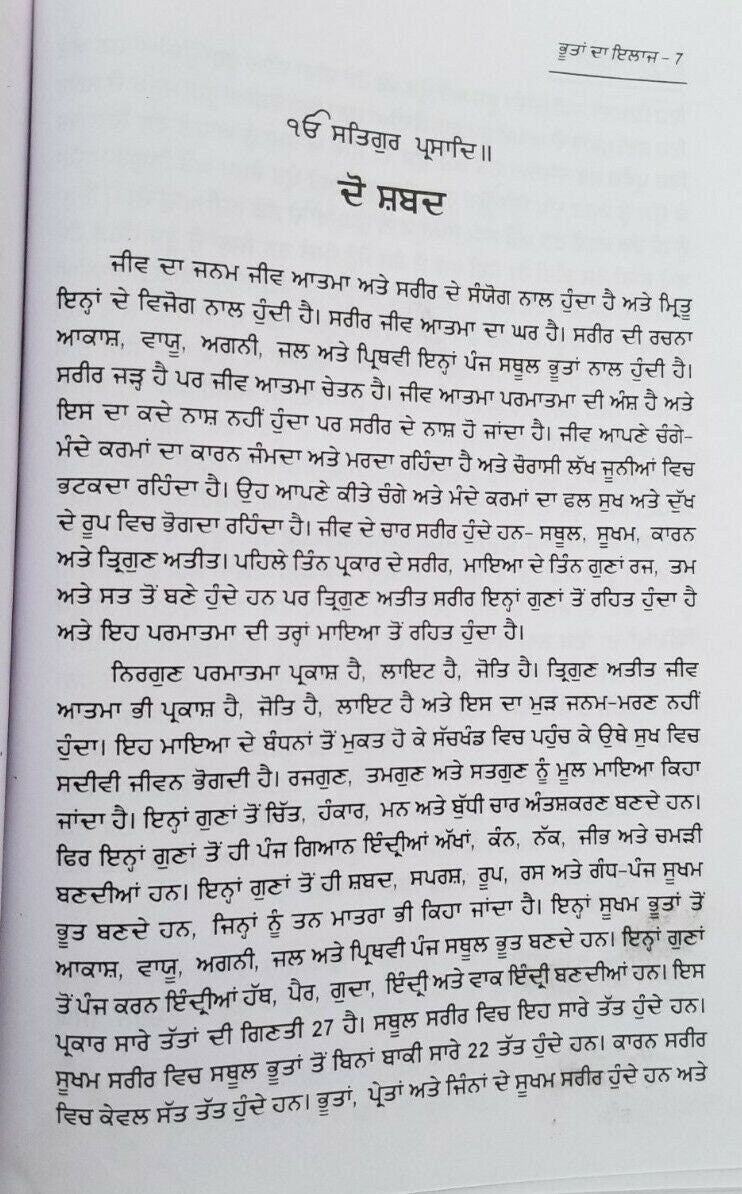 ਭੂਤਾਂ ਦਾ ਇਲਾਜ - 7
ੴ ਸਤਿਗੁਰ ਪ੍ਰਸਾਦਿ॥
ਦੋ ਸ਼ਬਦ
ਜੀਵ ਦਾ ਜਨਮ ਜੀਵ ਆਤਮਾ ਅਤੇ ਸਰੀਰ ਦੇ ਸੰਯੋਗ ਨਾਲ ਹੁੰਦਾ ਹੈ ਅਤੇ ਮ੍ਰਿਤੂ
ਇਨ੍ਹਾਂ ਦੇ ਵਿਜੋਗ ਨਾਲ ਹੁੰਦੀ ਹੈ। ਸਰੀਰ ਜੀਵ ਆਤਮਾ ਦਾ ਘਰ ਹੈ। ਸਰੀਰ ਦੀ ਰਚਨਾ
ਆਕਾਸ਼, ਵਾਯੂ, ਅਗਨੀ, ਜਲ ਅਤੇ ਪ੍ਰਿਥਵੀ ਇਨ੍ਹਾਂ ਪੰਜ ਸਥੂਲ ਭੂਤਾਂ ਨਾਲ ਹੁੰਦੀ ਹੈ।
ਸਰੀਰ ਜੜ੍ਹ ਹੈ ਪਰ ਜੀਵ ਆਤਮਾ ਚੇਤਨ ਹੈ। ਜੀਵ ਆਤਮਾ ਪਰਮਾਤਮਾ ਦੀ ਅੰਸ਼ ਹੈ ਅਤੇ
ਇਸ ਦਾ ਕਦੇ ਨਾਸ਼ ਨਹੀਂ ਹੁੰਦਾ ਪਰ ਸਰੀਰ ਦੇ ਨਾਸ਼ ਹੋ ਜਾਂਦਾ ਹੈ। ਜੀਵ ਆਪਣੇ ਚੰਗੇ-
ਮੰਦੇ ਕਰਮਾਂ ਦਾ ਕਾਰਨ ਜੰਮਦਾ ਅਤੇ ਮਰਦਾ ਰਹਿੰਦਾ ਹੈ ਅਤੇ ਚੌਰਾਸੀ ਲੱਖ ਜੂਨੀਆਂ ਵਿਚ
ਭਟਕਦਾ ਰਹਿੰਦਾ ਹੈ। ਉਹ ਆਪਣੇ ਕੀਤੇ ਚੰਗੇ ਅਤੇ ਮੰਦੇ ਕਰਮਾਂ ਦਾ ਫਲ ਸੁਖ ਅਤੇ ਦੁੱਖ
ਦੇ ਰੂਪ ਵਿਚ ਭੋਗਦਾ ਰਹਿੰਦਾ ਹੈ। ਜੀਵ ਦੇ ਚਾਰ ਸਰੀਰ ਹੁੰਦੇ ਹਨ- ਸਥੂਲ, ਸੂਖਮ, ਕਾਰਨ
ਅਤੇ ਤ੍ਰਿਗੁਣ ਅਤੀਤ। ਪਹਿਲੇ ਤਿੰਨ ਪ੍ਰਕਾਰ ਦੇ ਸਰੀਰ, ਮਾਇਆ ਦੇ ਤਿੰਨ ਗੁਣਾਂ ਰਜ, ਤਮ
ਅਤੇ ਸਤ ਤੋਂ ਬਣੇ ਹੁੰਦੇ ਹਨ ਪਰ ਤ੍ਰਿਗੁਣ ਅਤੀਤ ਸਰੀਰ ਇਨ੍ਹਾਂ ਗੁਣਾਂ ਤੋਂ ਰਹਿਤ ਹੁੰਦਾ ਹੈ
ਅਤੇ ਇਹ ਪਰਮਾਤਮਾ ਦੀ ਤਰ੍ਹਾਂ ਮਾਇਆ ਤੋਂ ਰਹਿਤ ਹੁੰਦਾ ਹੈ।
ਨਿਰਗੁਣ ਪਰਮਾਤਮਾ ਪ੍ਰਕਾਸ਼ ਹੈ, ਲਾਇਟ ਹੈ, ਜੋਤਿ ਹੈ। ਤ੍ਰਿਗੁਣ ਅਤੀਤ ਜੀਵ
ਆਤਮਾ ਭੀ ਪ੍ਰਕਾਸ਼ ਹੈ, ਜੋਤਿ ਹੈ, ਲਾਇਟ ਹੈ ਅਤੇ ਇਸ ਦਾ ਮੁੜ ਜਨਮ-ਮਰਣ ਨਹੀਂ
ਹੁੰਦਾ। ਇਹ ਮਾਇਆ ਦੇ ਬੰਧਨਾਂ ਤੋਂ ਮੁਕਤ ਹੋ ਕੇ ਸੱਚਖੰਡ ਵਿਚ ਪਹੁੰਚ ਕੇ ਉਥੇ ਸੁਖ ਵਿਚ
ਸਦੀਵੀ ਜੀਵਨ ਭੋਗਦੀ ਹੈ। ਰਜਗੁਣ, ਤਮਗੁਣ ਅਤੇ ਸਤਗੁਣ ਨੂੰ ਮੂਲ ਮਾਇਆ ਕਿਹਾ
ਜਾਂਦਾ ਹੈ। ਇਨ੍ਹਾਂ ਗੁਣਾਂ ਤੋਂ ਚਿੱਤ, ਹੰਕਾਰ, ਮਨ ਅਤੇ ਬੁੱਧੀ ਚਾਰ ਅੰਤਸ਼ਕਰਣ ਬਣਦੇ ਹਨ।
ਫਿਰ ਇਨ੍ਹਾਂ ਗੁਣਾਂ ਤੋਂ ਹੀ ਪੰਜ ਗਿਆਨ ਇੰਦ੍ਰੀਆਂ ਅੱਖਾਂ, ਕੰਨ, ਨੱਕ, ਜੀਭ ਅਤੇ ਚਮੜੀ
ਬਣਦੀਆਂ ਹਨ। ਇਨ੍ਹਾਂ ਗੁਣਾਂ ਤੋਂ ਹੀ ਸ਼ਬਦ, ਸਪਰਸ਼, ਰੂਪ, ਰਸ ਅਤੇ ਗੰਧ-ਪੰਜ ਸੂਖਮ
ਭੂਤ ਬਣਦੇ ਹਨ, ਜਿਨ੍ਹਾਂ ਨੂੰ ਤਨ ਮਾਤਰਾ ਭੀ ਕਿਹਾ ਜਾਂਦਾ ਹੈ। ਇਨ੍ਹਾਂ ਸੂਖਮ ਭੂਤਾਂ ਤੋਂ
ਆਕਾਸ਼, ਵਾਯੂ, ਅਗਨੀ, ਜਲ ਅਤੇ ਪ੍ਰਿਥਵੀ ਪੰਜ ਸਥੂਲ ਭੂਤ ਬਣਦੇ ਹਨ। ਇਨ੍ਹਾਂ ਗੁਣਾਂ
ਤੋਂ ਪੰਜ ਕਰਨ ਇੰਦ੍ਰੀਆਂ ਹੱਥ, ਪੈਰ, ਗੁਦਾ, ਇੰਦ੍ਰੀ ਅਤੇ ਵਾਕ ਇੰਦ੍ਰੀ ਬਣਦੀਆਂ ਹਨ। ਇਸ
ਪ੍ਰਕਾਰ ਸਾਰੇ ਤੱਤਾਂ ਦੀ ਗਿਣਤੀ 27 ਹੈ। ਸਥੂਲ ਸਰੀਰ ਵਿਚ ਇਹ ਸਾਰੇ ਤੱਤ ਹੁੰਦੇ ਹਨ।
ਸੂਖਮ ਸਰੀਰ ਵਿਚ ਸਥੂਲ ਭੂਤਾਂ ਤੋਂ ਬਿਨਾਂ ਬਾਕੀ ਸਾਰੇ 22 ਤੱਤ ਹੁੰਦੇ ਹਨ। ਕਾਰਨ ਸਰੀਰ
ਵਿਚ ਕੇਵਲ ਸੱਤ ਤੱਤ ਹੁੰਦੇ ਹਨ। ਭੂਤਾਂ, ਪ੍ਰੇਤਾਂ ਅਤੇ ਜਿੰਨਾਂ ਦੇ ਸੂਖਮ ਸਰੀਰ ਹੁੰਦੇ ਹਨ ਅਤੇ